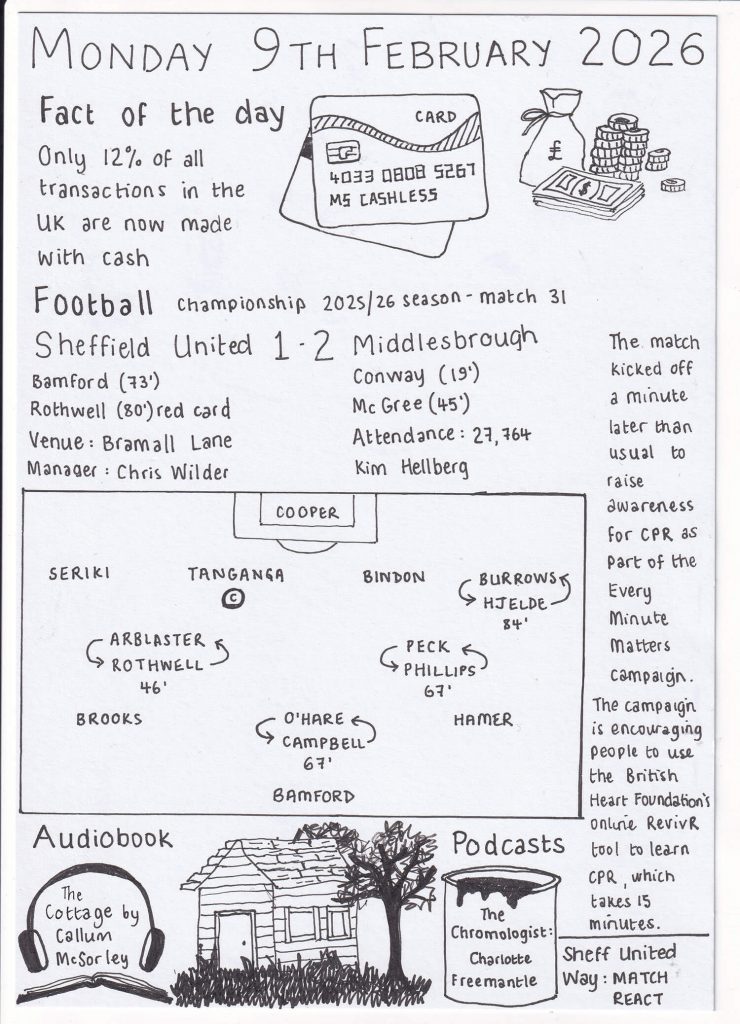 MONDAY 9TH FEBRUARY 2026
Fact of the day
Only 12% of all
transactions in the
UK are now made
with cash
CARD
4033 0808 5267
MS CASHLESS
£
$
Football Championship 2025/26 season - match 31
Sheffield United 1 - 2 Middlesbrough
Bamford (73')
Rothwell (80') red card
Venue: Bramall Lane
Manager: Chris Wilder
Conway (19')
McGree (45')
Attendance: 27,764
Kim Hellberg
COOPER
SERIKI TANGANGA BINDON BURROWS
C
HJELDE
84'
ARBLASTER
ROTHWELL
46'
PECK
PHILLIPS
67'
BROOKS
O'HARE
CAMPBELL
67'
HAMER
BAMFORD
The match
kicked off
a minute
later than
usual to
raise
awareness
for CPR as
part of the
Every
Minute
Matters
campaign.
The campaign
is encouraging
people to use
the British
Heart Foundation's
online RevivR
tool to learn
CPR, which
takes 15
minutes.
Audiobook
The
Cottage by
Callum
McSorley
Podcasts
The
Chromologist:
Charlotte
Freemantle
Sheff United
Way: MATCH
REACT